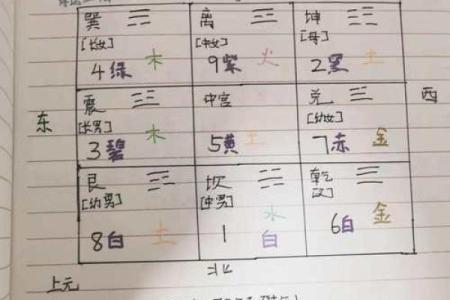 巽 离 坤
[长女] [中女] [母]
4绿 木 9紫 火 2黑 土
东 震 中宫 兑 西
[长男] [幼女]
3碧 木 5黄 土 7赤 金
艮 坎 乾
[幼男] [中男] [父]
8白 土 1白 水 6白 金
上元 北